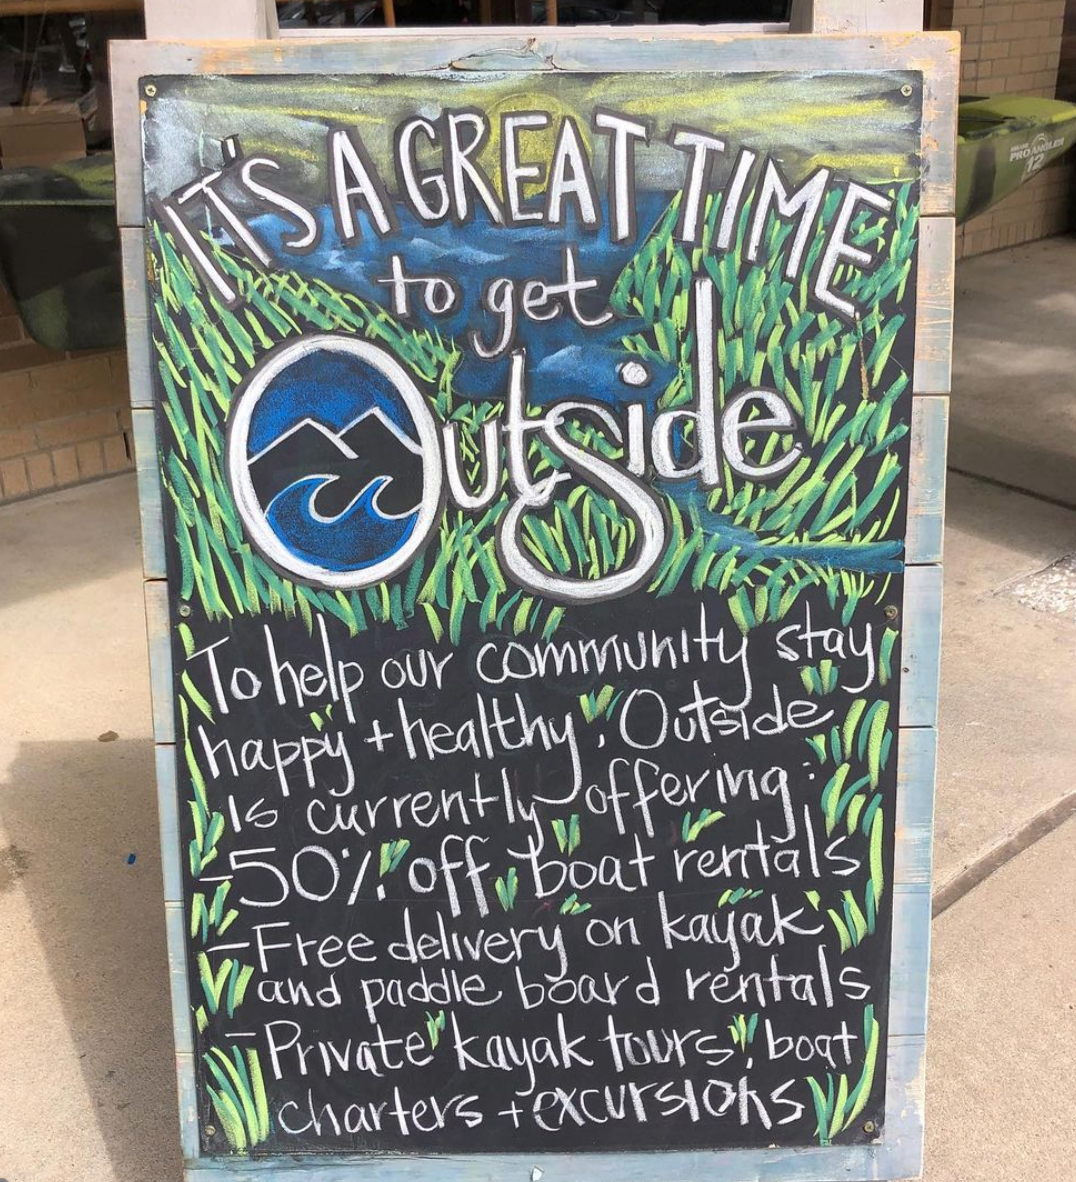 IT'S A GREAT TIME
to get
Outside
To help our community stay
happy + healthy, Outside
is currently offering:
-50% off boat rentals
-Free delivery on kayak
and paddle board rentals
-Private kayak tours, boat
charters + excursions
PRO ANGLER
12